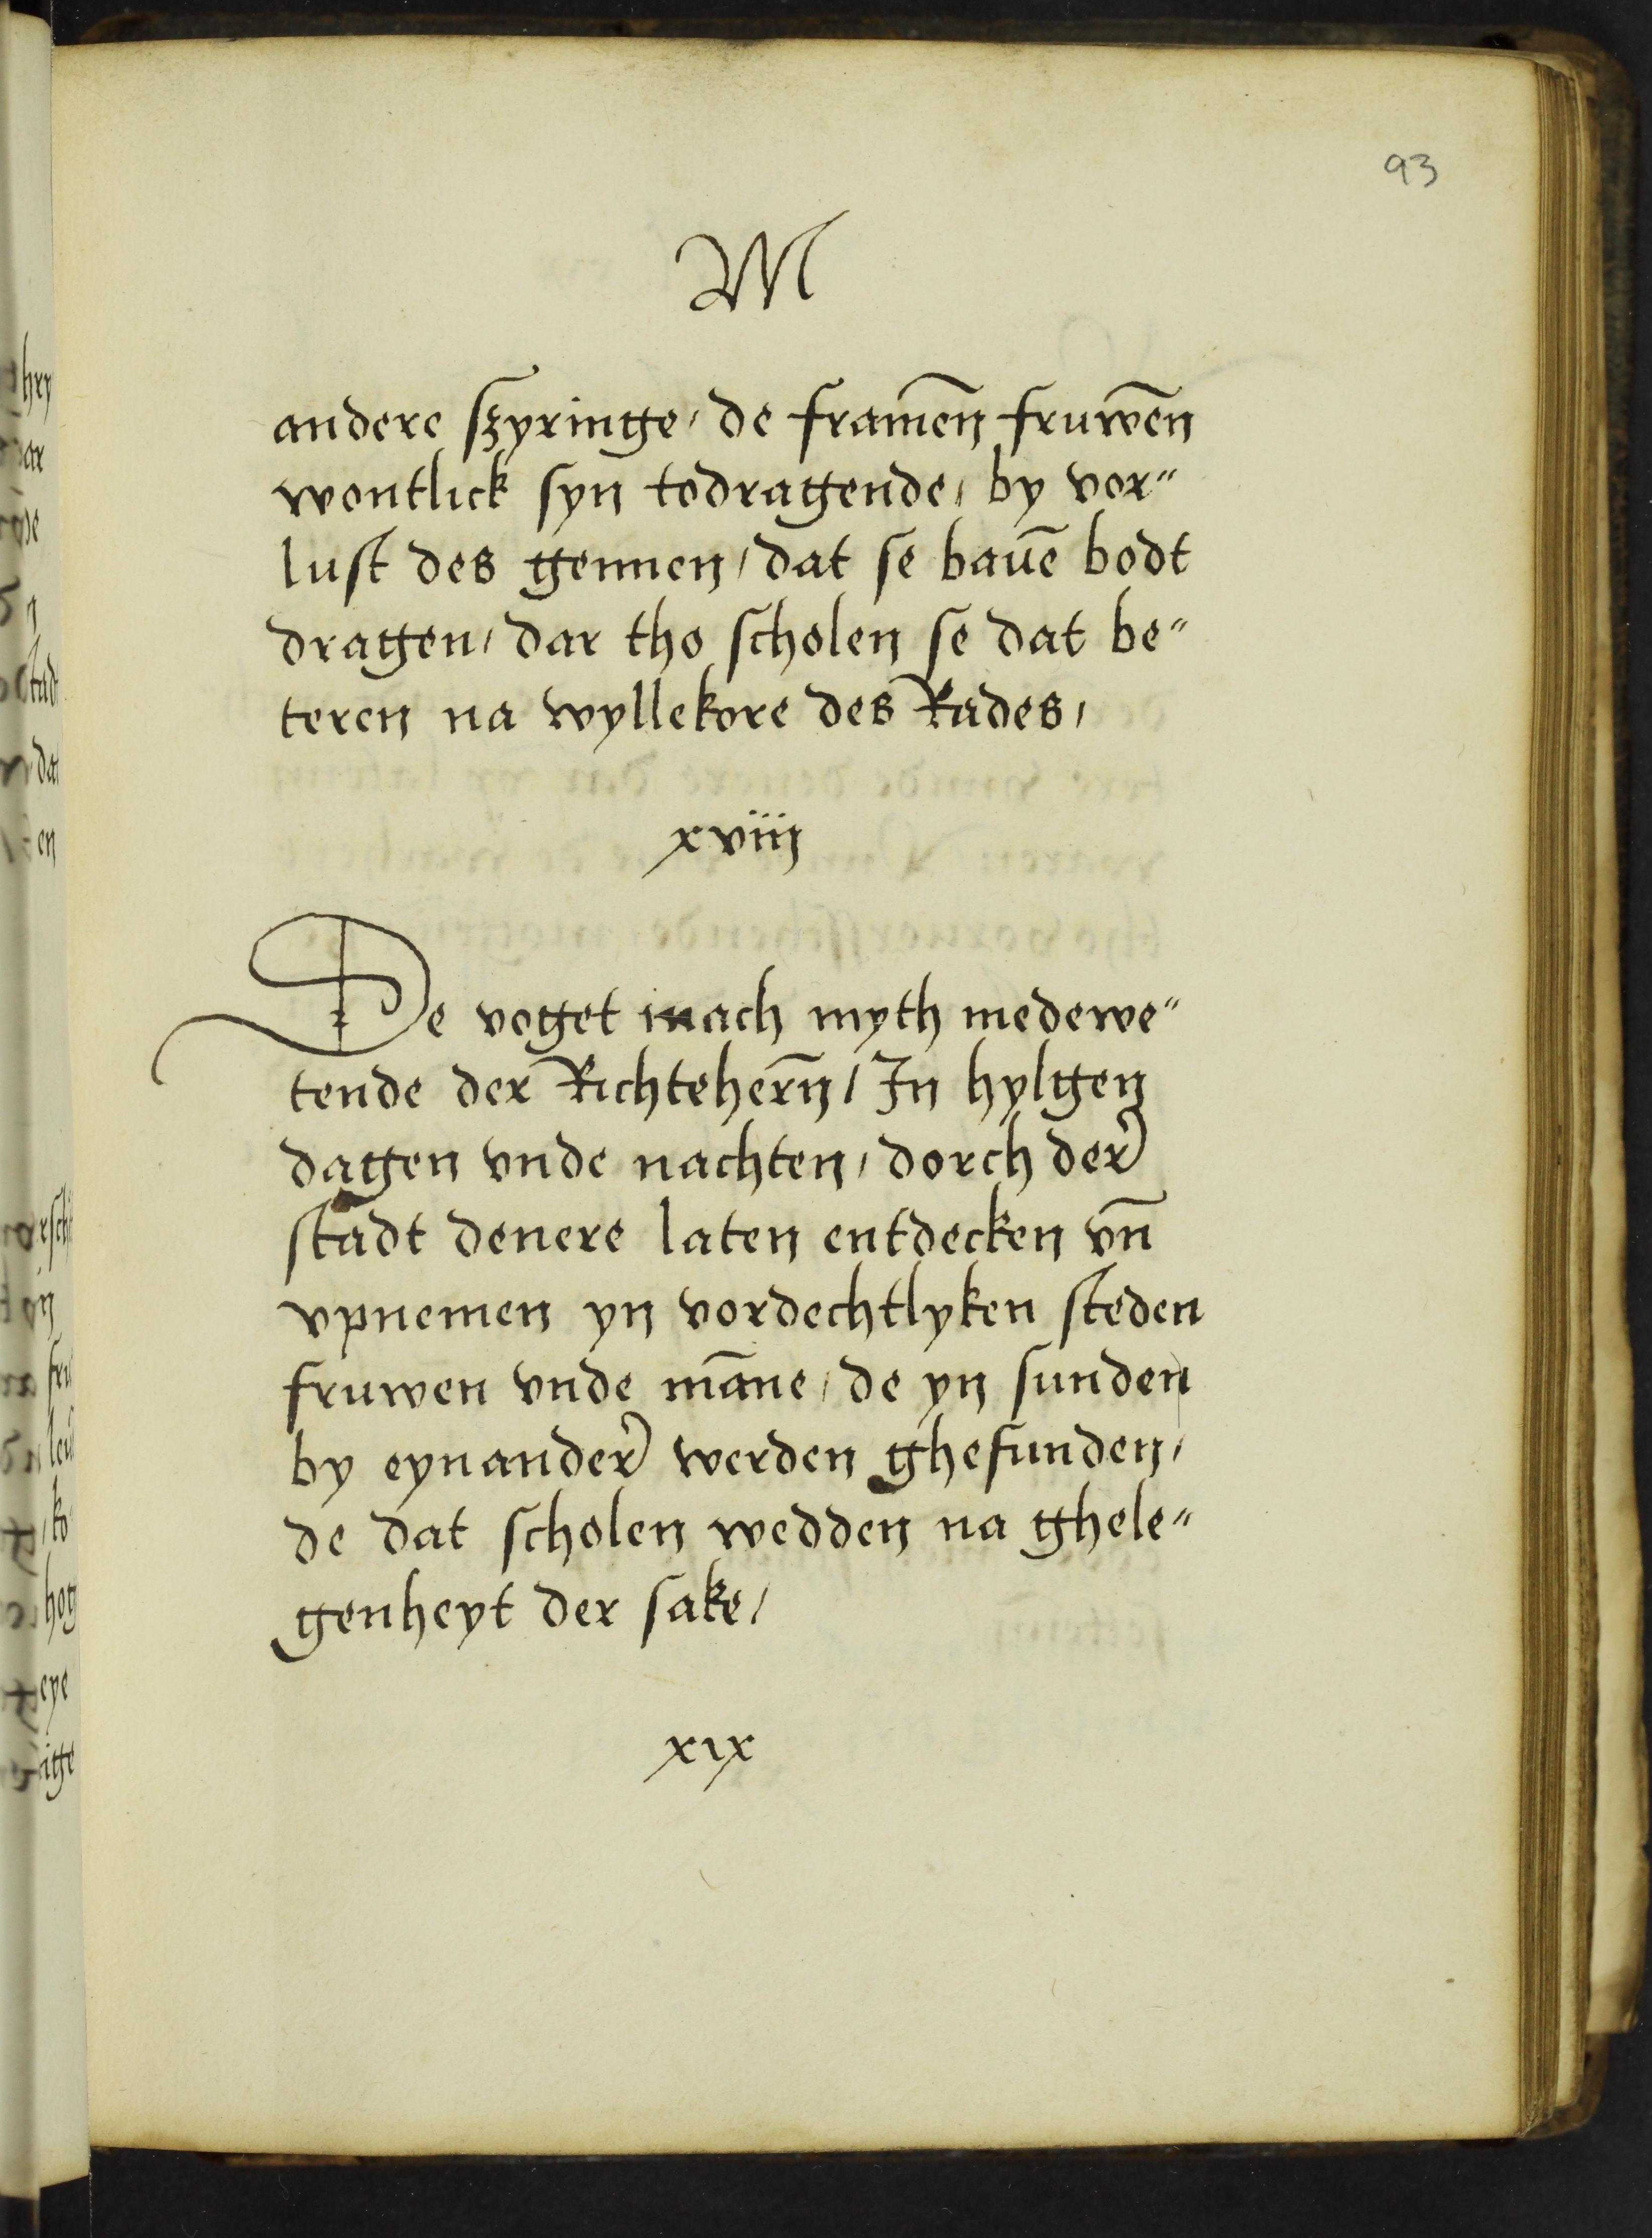 93
M
andere szyringe / de framēn fruwēn
wontlick syn todragende / by vor"
lust des gennen / dat se bauē bodt
dragen / dar tho scholen se dat be"
teren na wyllekore des Rades /
xviii
De voget mach myth medewe"
tende der Richtehern̄ / In hylgen
dagen vnde nachten / dorch der
stadt denere laten entdecken vn̄
vpnemen yn vordechtlyken steden
fruwen vnde māne / de yn sunden
by eynander werden ghefunden /
de dat scholen wedden na ghele"
genheyt der sake /
xix